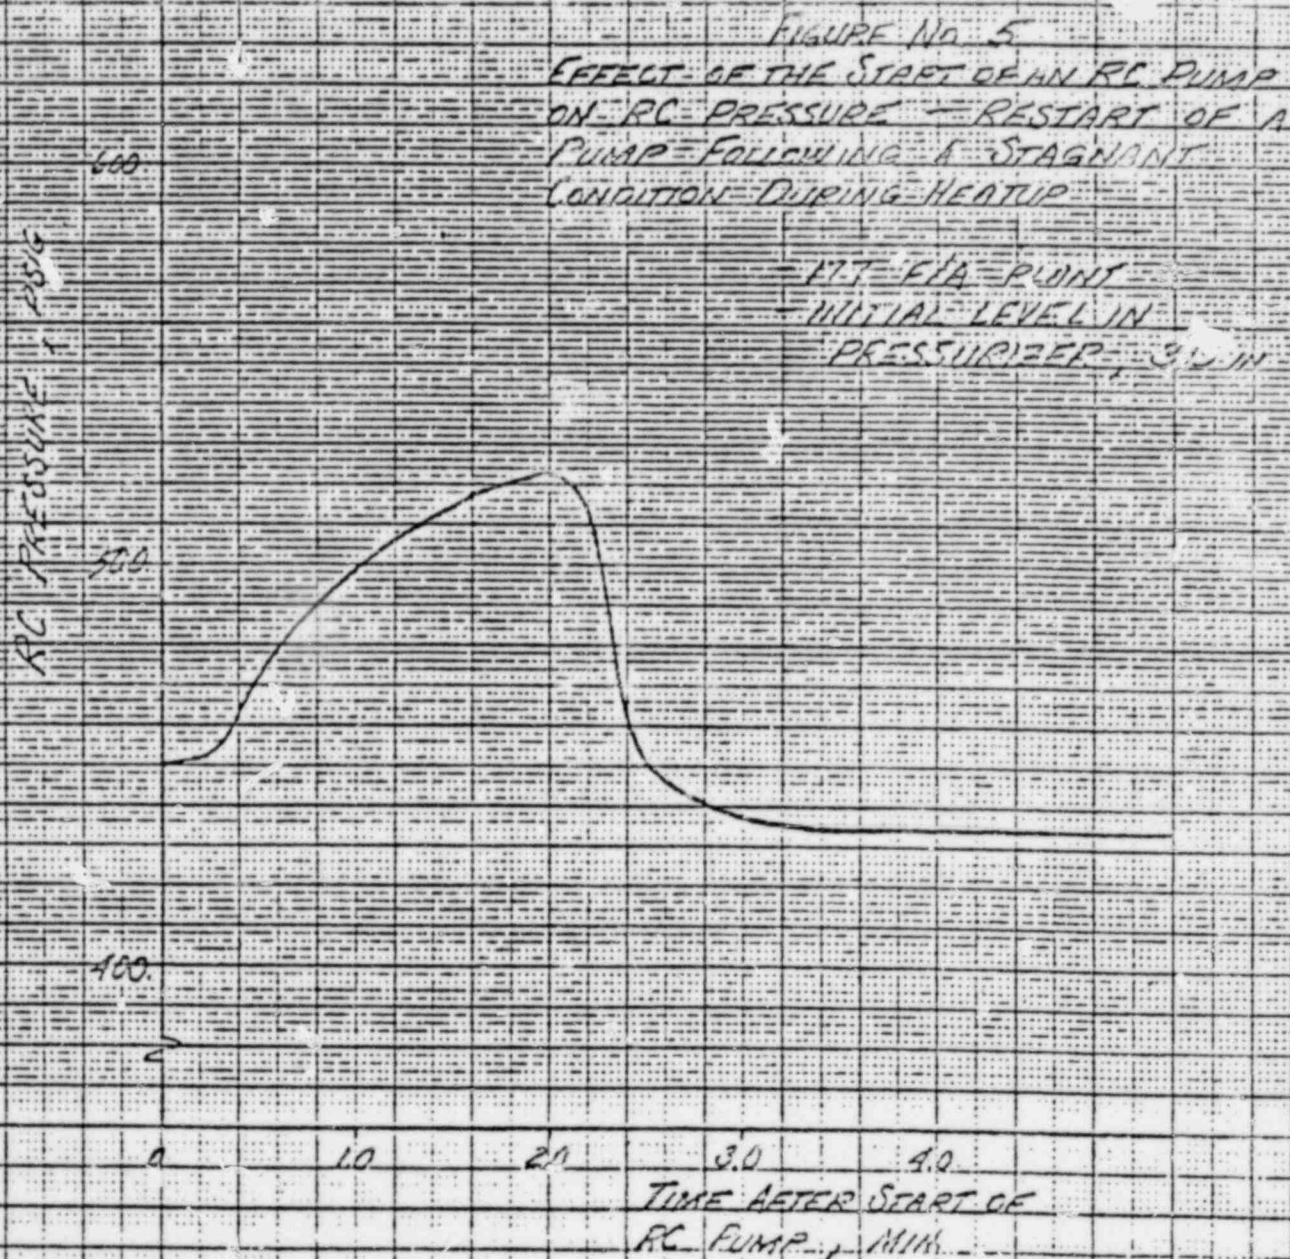 FIGURE No. 5
EFFECT OF THE START OF AN RC PUMP
ON RC PRESSURE - RESTART OF A
PUMP FOLLOWING A STAGNANT
CONDITION DURING HEATUP
177 F/A PLANT
INITIAL LEVEL IN
PRESSURIZER, IN
RC PRESSURE, PSIG
600.
500.
400.
0 1.0 2.0 3.0 4.0
TIME AFTER START OF
RC PUMP, MIN.